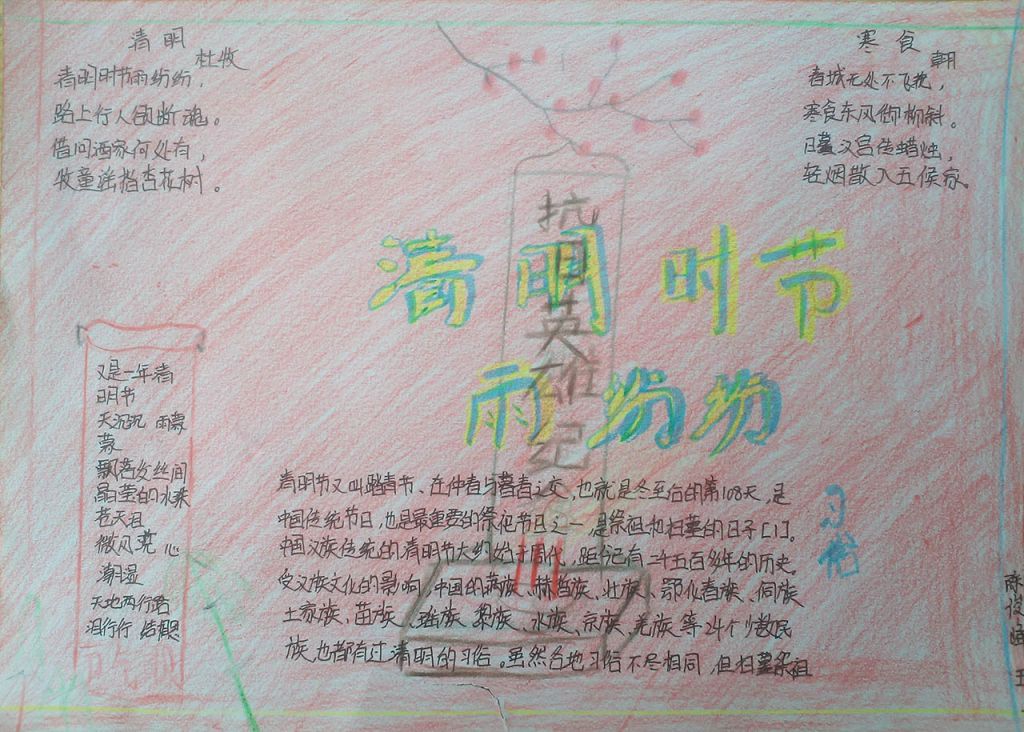 清明
杜牧
清明时节雨纷纷，
路上行人欲断魂。
借问酒家何处有，
牧童遥指杏花树。
寒食
翃
春城无处不飞花，
寒食东风御柳斜。
日暮汉宫传蜡烛，
轻烟散入五侯家。
抗日英雄纪
清明时节
雨纷纷
又是一年清
明节
天沉沉 雨蒙
蒙
飘落发丝间
晶莹的水珠
苍天泪
微风亮 心
潮湿
天地两行路
泪行行 结相思
节气
习俗
清明节又叫踏青节、在仲春与暮春之交，也就是冬至后的第108天，是
中国传统节日，也是最重要的祭祀节日之一，是祭祖和扫墓的日子[1]。
中国汉族传统的清明节大约始于周代，距今已有二千五百多年的历史。
受汉族文化的影响，中国的满族、赫哲族、壮族、鄂伦春族、侗族
土家族、苗族、瑶族、黎族、水族、京族、羌族等24个少数民
族，也都有过清明的习俗。虽然各地习俗不尽相同，但扫墓祭祖